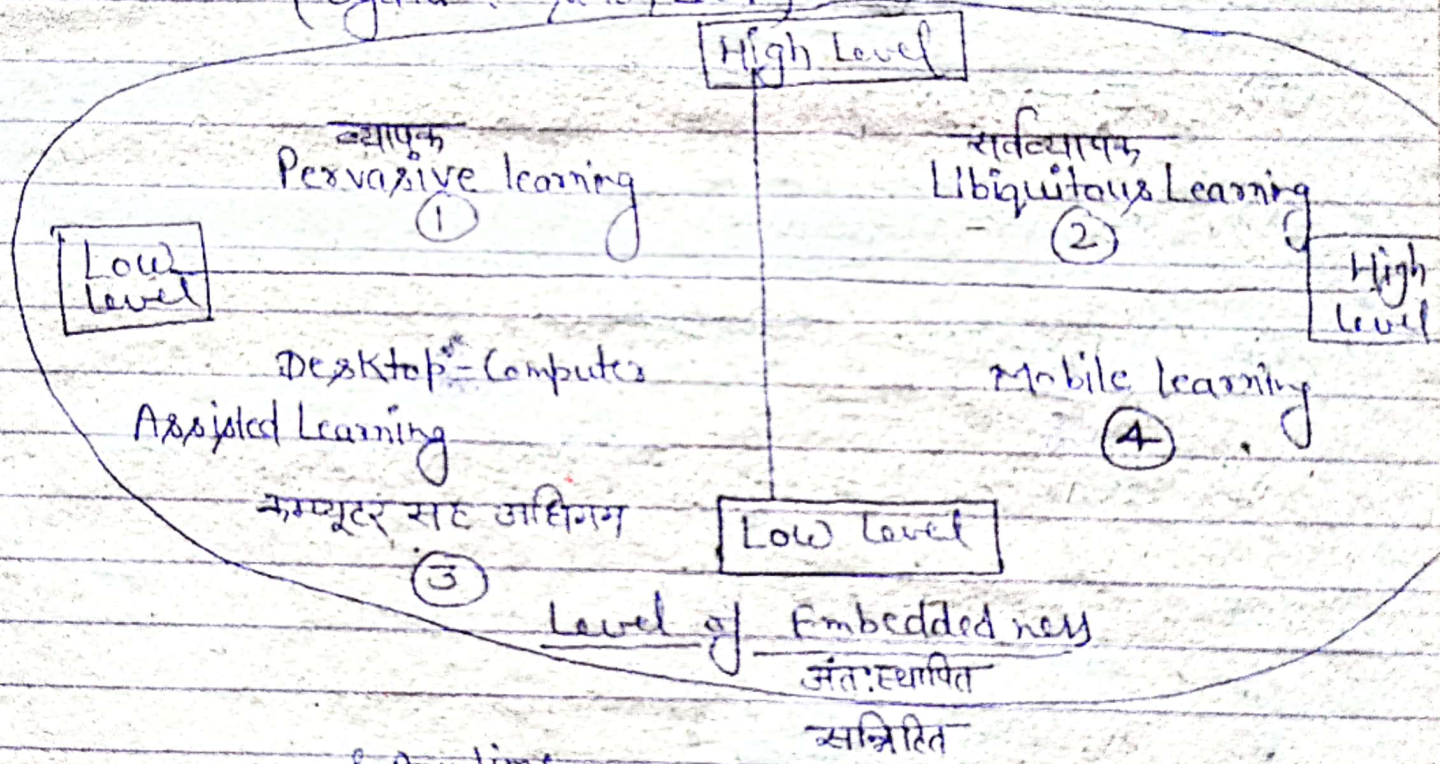 High Level
व्यापक
Pervasive learning
1
सर्वव्यापक
Ubiquitous Learning
2
Low
level
High
level
Desktop-Computer
Assisted Learning
Mobile learning
4
कम्प्यूटर सह अधिगम
3
Low Level
Level of Embeddedness
अंतःस्थापित
सन्निहित